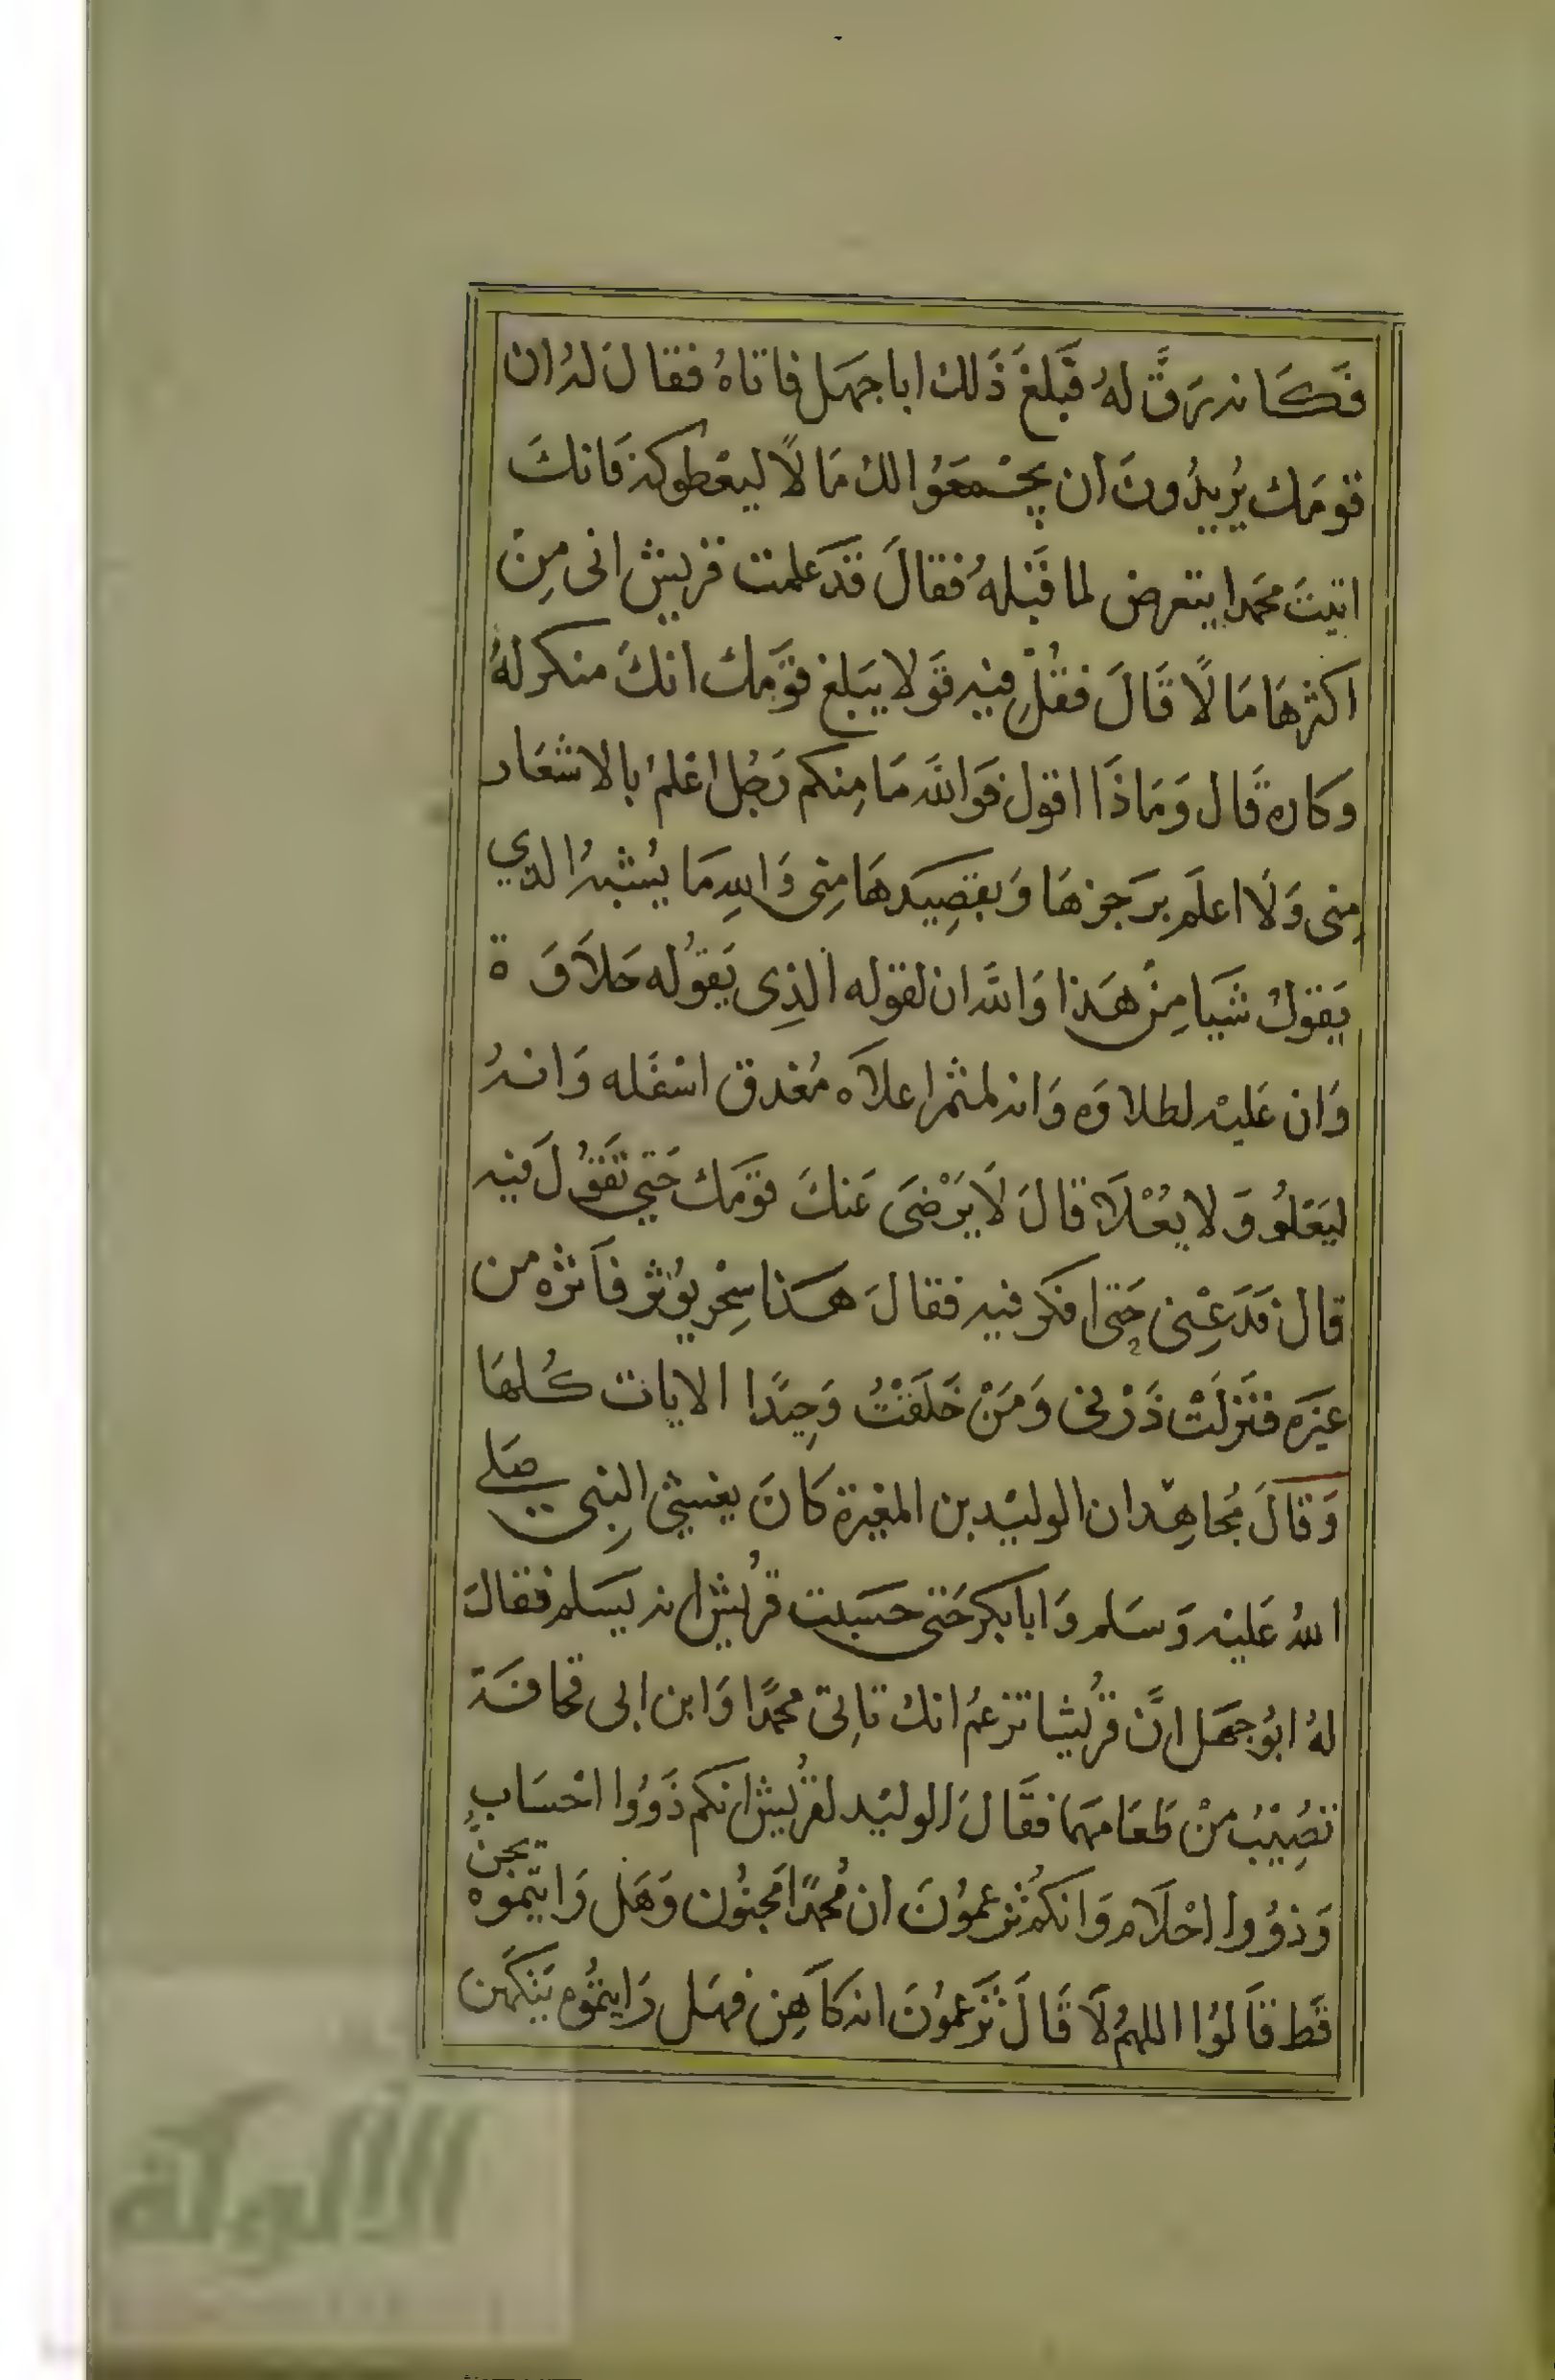 فَكَانه رَقَّ لهُ فَبَلغَ ذَلك ابا جهَل فاتاهُ فقالَ لهُ ان
قومَك يُريدُونَ ان يجْمعَوُا لك مَالًا ليعْطوكه فَانكَ
اتيتَ محمدا يتعرض لما قَبْلهُ فقالَ قدَ علمت قريش انى مِنْ
اكثرهَا مَالًا قَالَ فقُلْ فيه قَولا يبَلغ قوَمك انكَ منكر لهُ
وكاره قَال وَمَاذَا اقول فوَاللهَ مَا مِنكم رَجُل اعْلمُ بالاشعَار
مِنى وَلَا اعلَم برَجزهَا وَبقصِيدهَا مِنى وَاللهِ مَا يُشبهُ الذي
يَقولُ شَيا مِنْ هَذا وَالله ان لقوله الذِى يَقوُله حَلاَوَة
وَان عَليْه لطلاوَه وَانه لمثمر اعلاَه مُغدق اسْفَله وَانهُ
ليَعْلُو وَلا يُعْلَا قالَ لَا يَرْضىَ عَنكَ قوَمك حَتي تَقوُلَ فيه
قال فدَعِنى حَتى افكر فيه فقالَ هَذا سِحْر يوُثر فاَثره من
غيَره فنَزلَتْ ذَرْنى وَمَنْ خَلَقْتُ وَحِيدًا الايات كُلهَا
وَقالَ مُجاهِد ان الوليْد بن المغيرة كَانَ يغشي النبى صَلى
اللهُ عَليْه وَسَلم وَابا بكر حَتى حسَبت قرُيش انه يَسلم فقالَ
لهُ ابوُ جهَل انَّ قرُيشا تزعمُ انك تاتِى محمدًا وَابن ابى قحافَة
تصُيْبُ منْ طَعَامهما فقَالَ الوليْد لقرُيش انكم ذَوُوا احْسَابٍ
وَذوُوا احْلَام وَانكُمْ تزعموُنَ ان مُحمدًا مَجنوُن وَهَل رَايتموه يجن
قَط قاَلوُا اللهمُ لَا قَالَ تَزْعموُنَ انه كاَهِن فهَل رَايتموُه يَتكَهن
الألوكة